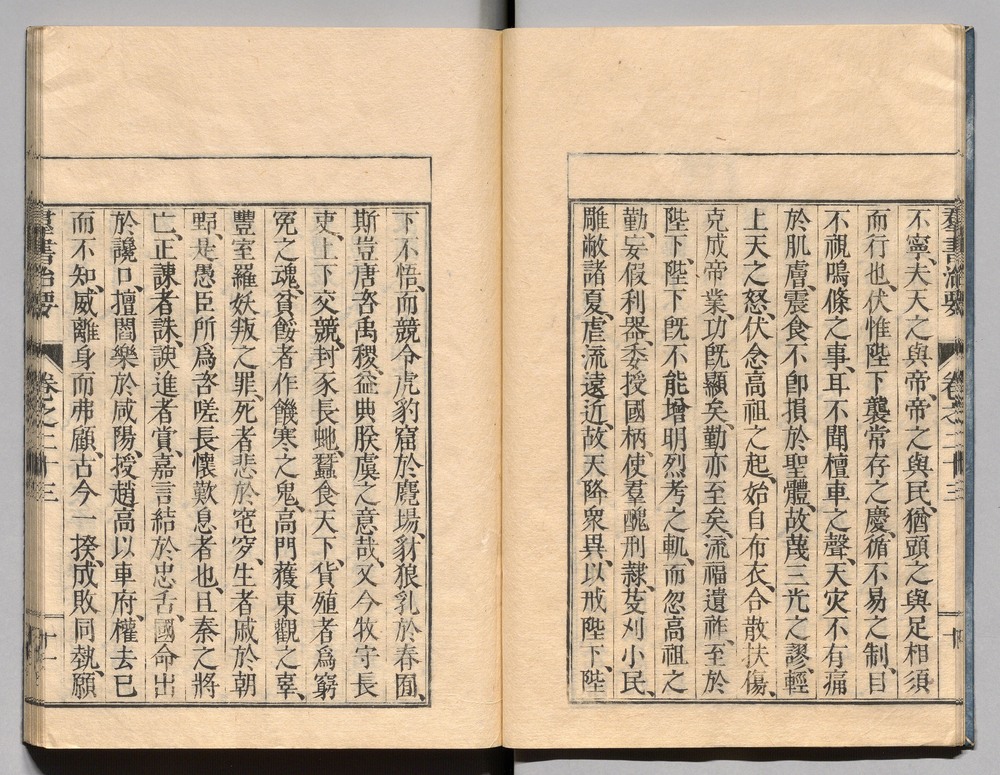 羣書治要 卷之二十三
不寧、夫天之與帝、帝之與民、猶頭之與足相須
而行也、伏惟陛下襲常存之慶、循不易之制、目
不視鳴條之事、耳不聞檀車之聲、天灾不有痛
於肌膚、震食不卽損於聖體、故蔑三光之謬、輕
上天之怒、伏念高祖之起、始自布衣、合散扶傷、
克成帝業、功旣顯矣、勤亦至矣、流福遺祚、至於
陛下、陛下旣不能增明烈考之軌、而忽高祖之
勤、妄假利器、委授國柄、使羣醜刑隷、芟刈小民、
雕敝諸夏、虐流遠近、故天降衆異、以戒陛下、陛
下不悟、而競令虎豹窟於麑場、豺狼乳於春囿、
斯豈唐咨禹稷、益典朕虞之意哉、又今牧守長
吏、上下交競、封豕長虵、蠶食天下、貨殖者爲窮
冤之魂、貧餒者作饑寒之鬼、高門獲東觀之辜、
豐室羅妖叛之罪、死者悲於窀穸、生者戚於朝
野、是愚臣所爲咨嗟長懷歎息者也、且秦之將
亡、正諫者誅、諛進者賞、嘉言結於忠舌、國命出
於讒口、擅閻樂於咸陽、授趙高以車府、權去已
而不知、威離身而弗顧、古今一揆、成敗同𫝑、願
羣書治要 卷之二十三 十一